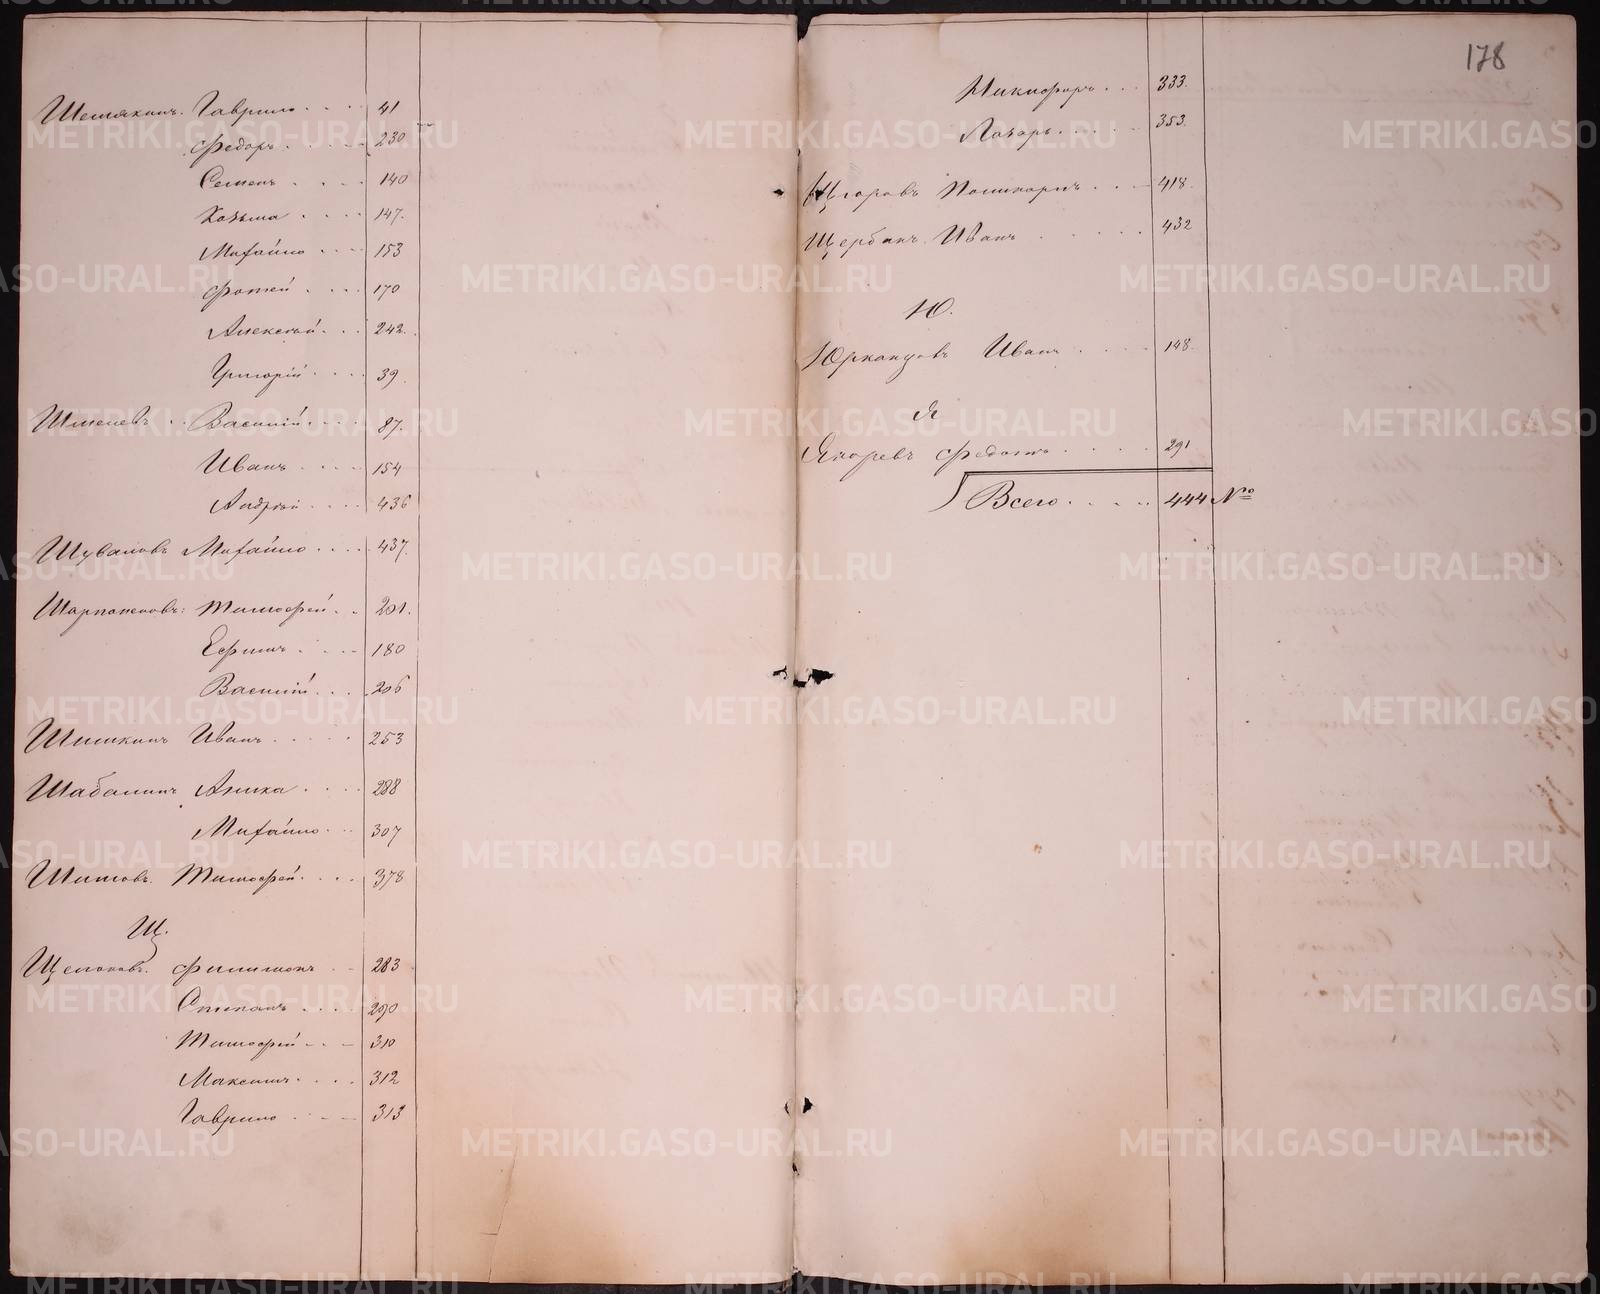 Шемякинъ. Гаврило 41
Федоръ 230
Семенъ 140
Козьма 147.
Михайло 153
Фотей 170
Алексѣй 242.
Григорій 39
Шмелевъ Василій 87.
Иванъ 154
Андрѣй 436
Шуваловъ Михайло 437
Шарпатковъ: Тимофей 201.
Ефимъ 180
Василій 206
Шишкинъ Иванъ 253
Шабалинъ Аника 288
Михайло 307
Шитовъ. Тимофей 378
Щ.
Щелоковъ. Филимонъ 283
Степанъ 290
Тимофей 310
Максимъ 312
Гаврило 313
178
Никифоръ 333.
Лазарь 353.
Щ Поликарпъ 418.
Щербак. Иванъ 432
Ю.
Иванъ 148.
Я
Якоревъ Федотъ 291
Всего 444 №
METRIKI.GASO-URAL.RU